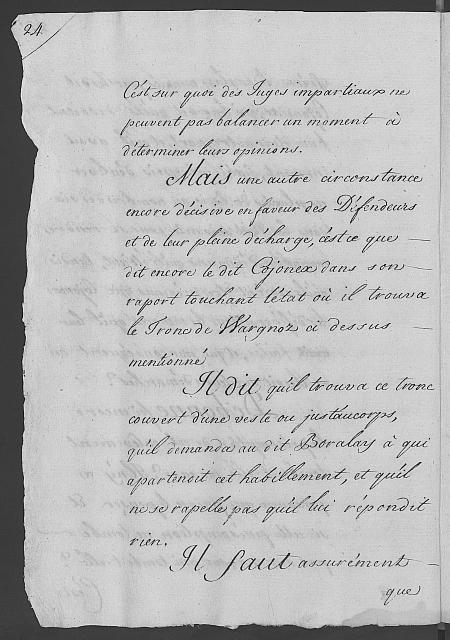 24.
C'est sur quoi des Juges impartiaux ne
peuvent pas balancer un moment à
déterminer leurs opinions.
Mais une autre circonstance
encore décisive en faveur des Défendeurs
et de leur plaine décharge, c'est ce que —
dit encore le dit Cojonex dans son
raport touchant l'état où il trouva
le Tronc de Wargnoz ci dessus —
mentionné
Il dit qu'il trouva ce tronc
couvert d'une veste ou justaucorps,
qu'il demanda au dit Boralay à qui
apartenoit cet habillement, et qu'il
ne se rapelle pas qu'il lui répondit
rien.
Il faut assurément —
que